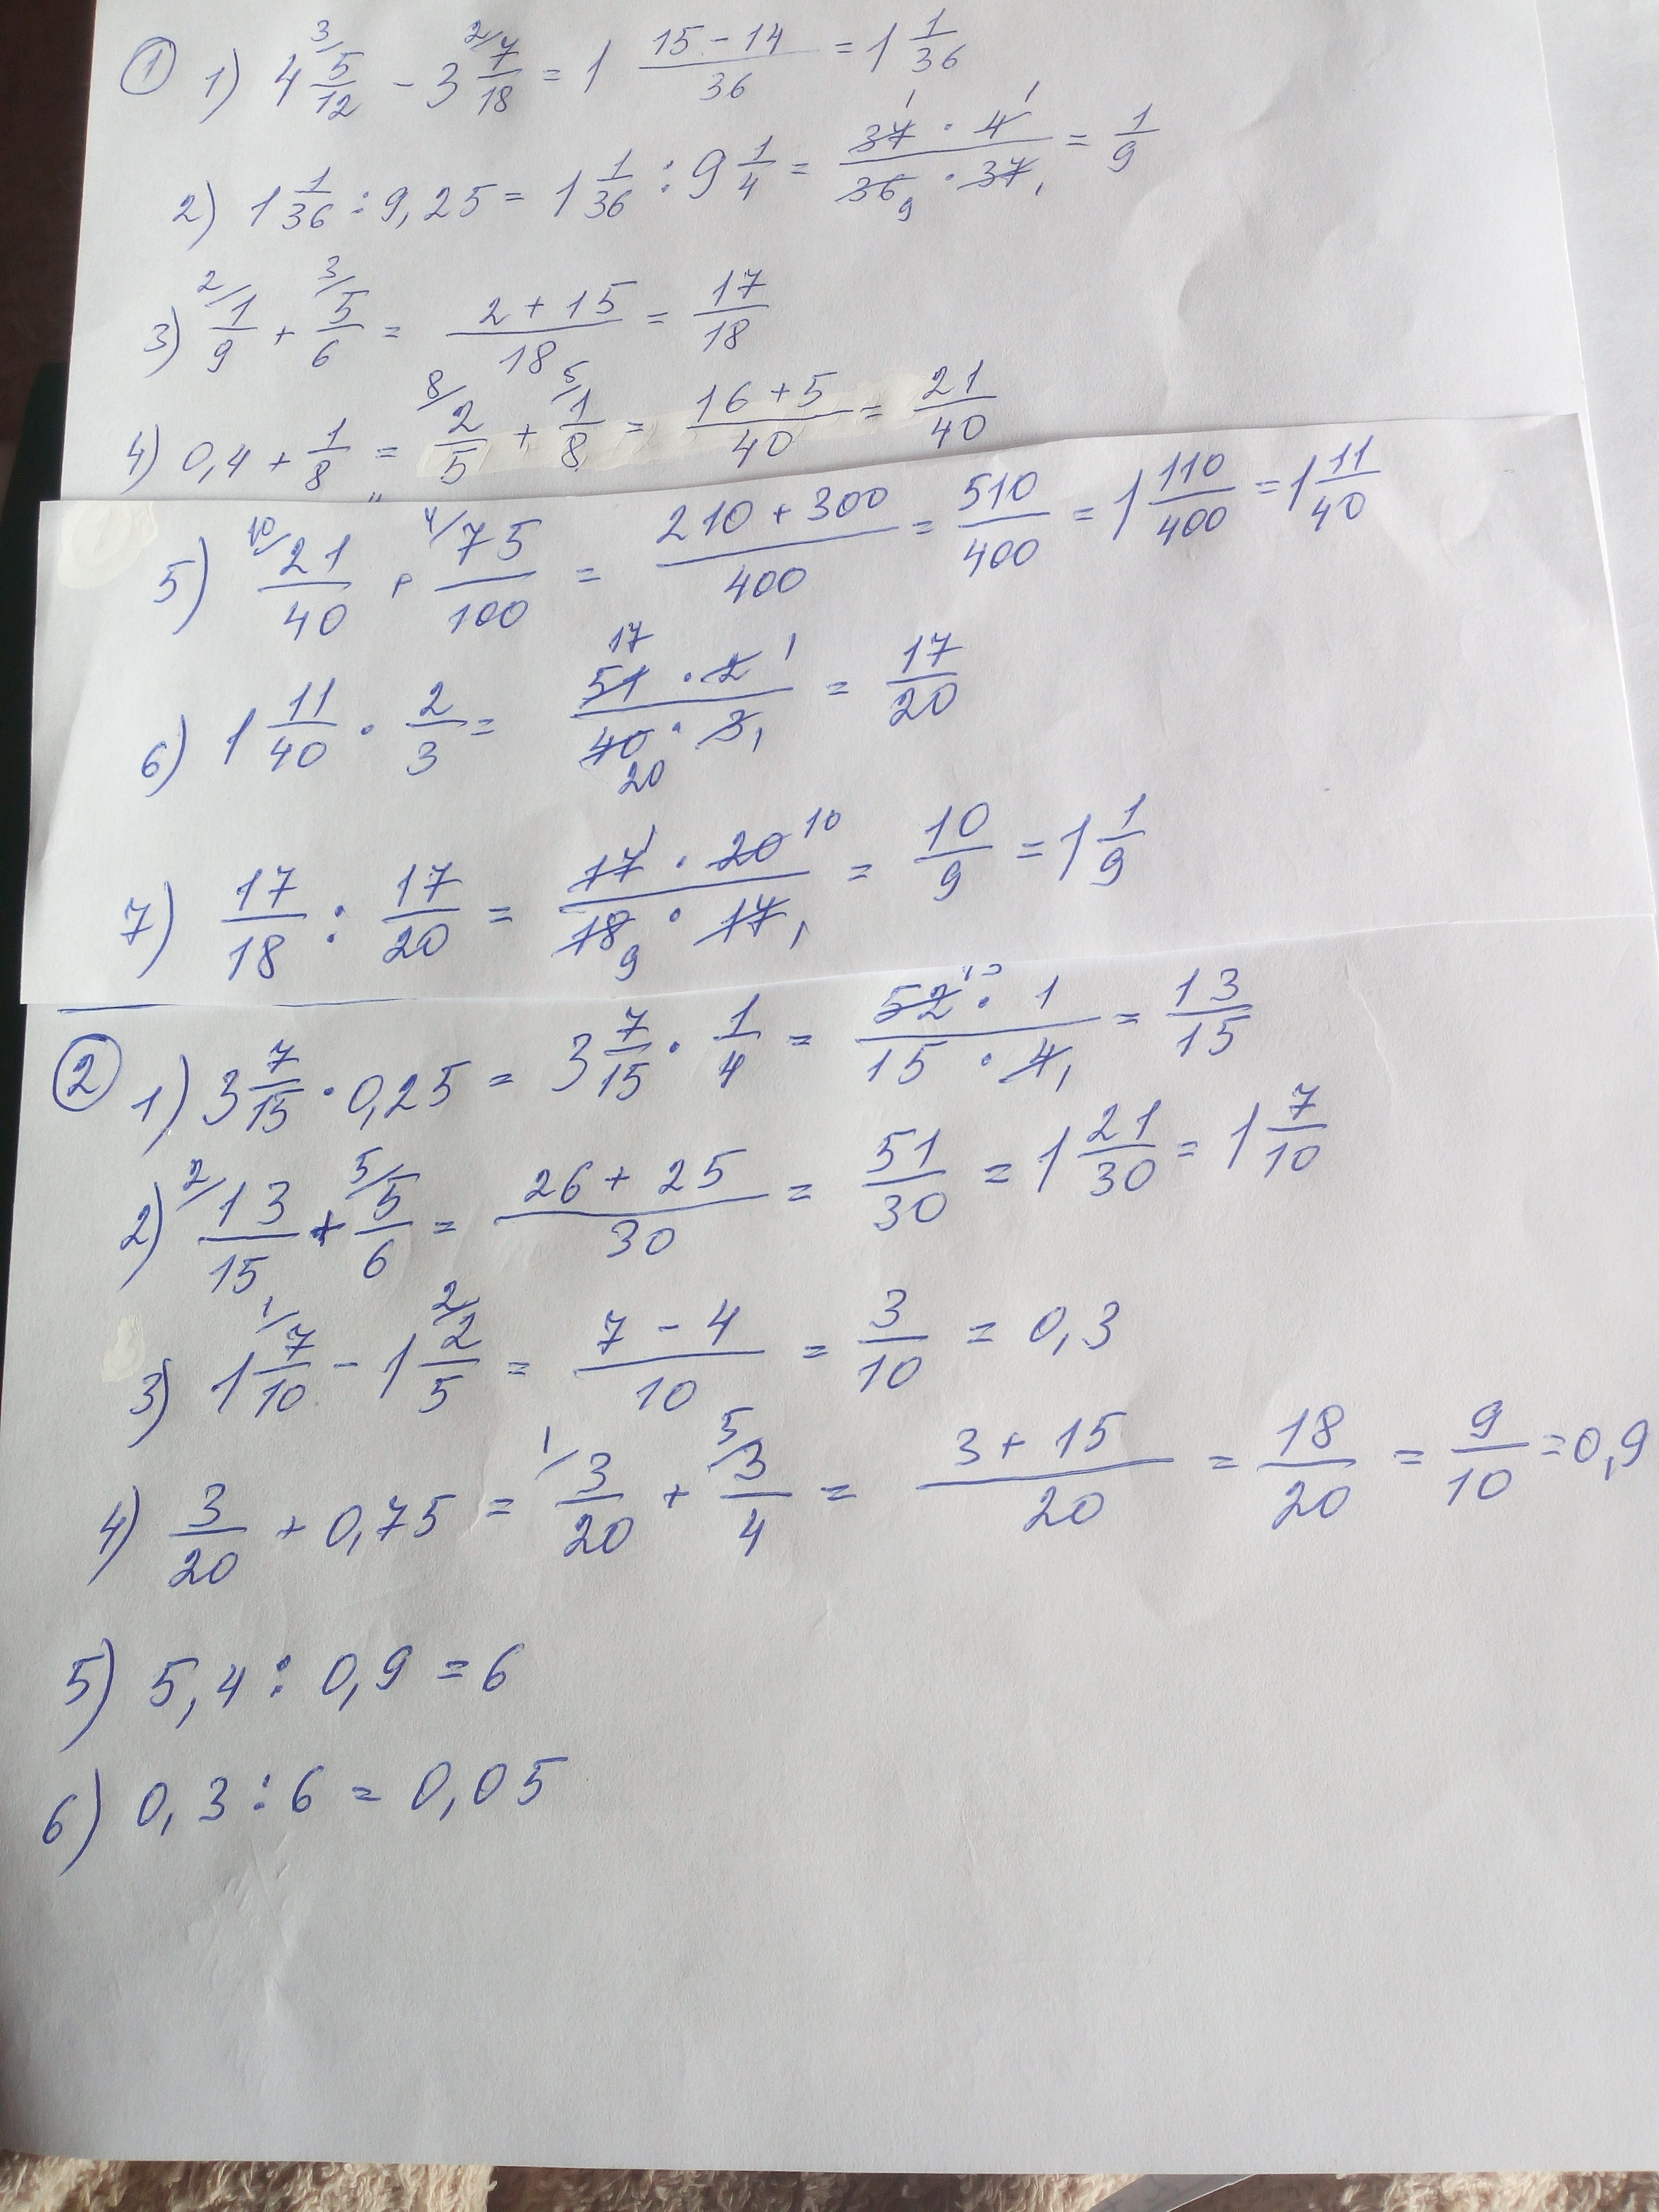 ① 1) 4 5/12 - 3 7/18 = 1 (15-14)/36 = 1 1/36
2) 1 1/36 : 9,25 = 1 1/36 : 9 1/4 = (37 · 4)/(36 · 37) = 1/9
3) 1/9 + 5/6 = (2+15)/18 = 17/18
4) 0,4 + 1/8 = 2/5 + 1/8 = (16+5)/40 = 21/40
5) 21/40 + 75/100 = (210+300)/400 = 510/400 = 1 110/400 = 1 11/40
6) 1 11/40 · 2/3 = (51 · 2)/(40 · 3) = 17/20
7) 17/18 : 17/20 = (17 · 20)/(18 · 17) = 10/9 = 1 1/9
② 1) 3 7/15 · 0,25 = 3 7/15 · 1/4 = (52 · 1)/(15 · 4) = 13/15
2) 13/15 + 5/6 = (26+25)/30 = 51/30 = 1 21/30 = 1 7/10
3) 1 7/10 - 1 2/5 = (7-4)/10 = 3/10 = 0,3
4) 3/20 + 0,75 = 3/20 + 3/4 = (3+15)/20 = 18/20 = 9/10 = 0,9
5) 5,4 : 0,9 = 6
6) 0,3 : 6 = 0,05